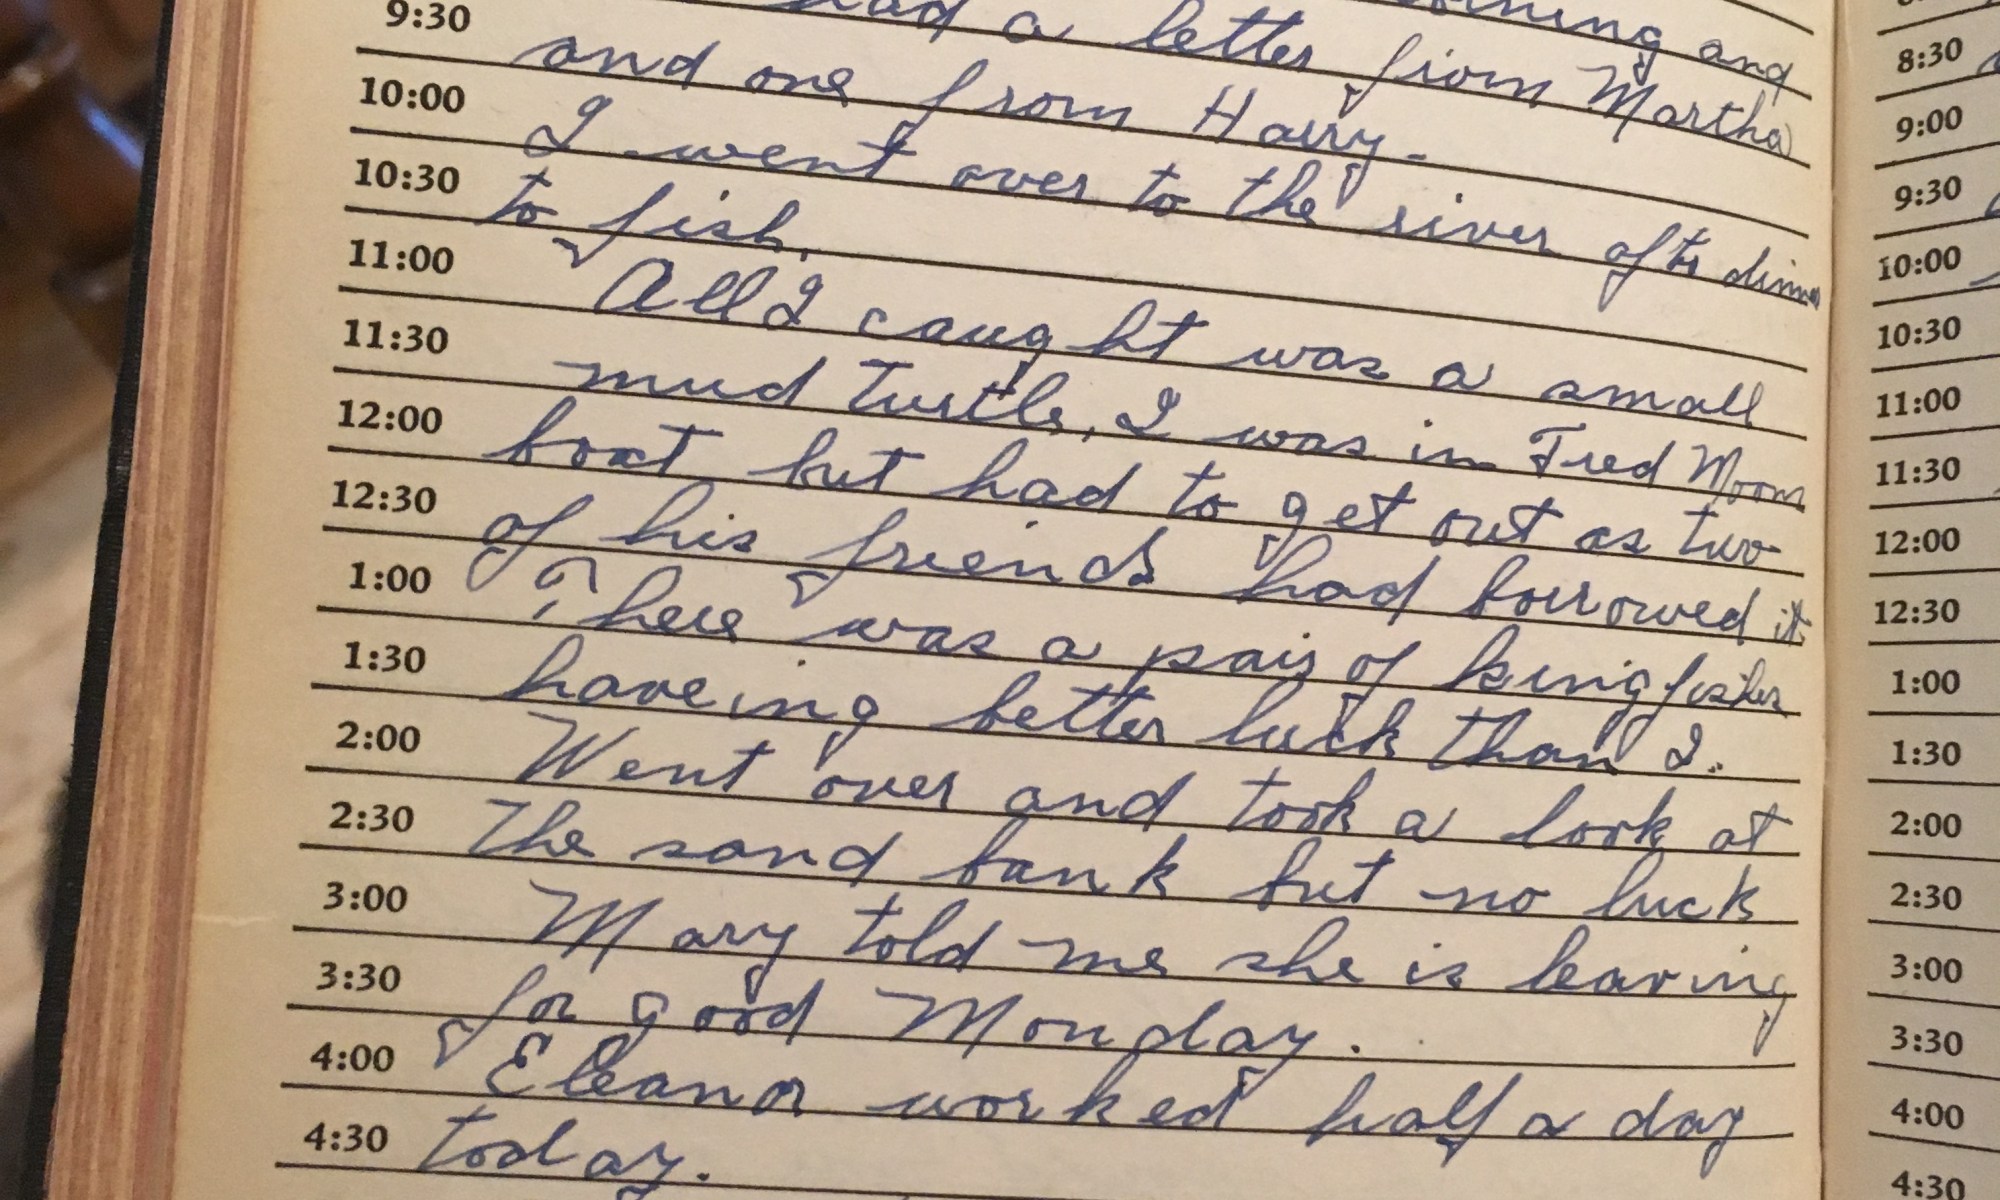 and
9:30 had a letter from Martha
10:00 and one from Harry.
10:30 I went over to the river after dinner
11:00 to fish.
11:30 All I caught was a small
12:00 mud turtle, I was in Fred Moons
12:30 boat but had to get out as two
1:00 of his friends had borrowed it
1:30 There was a pair of kingfisher
2:00 haveing better luck than I.
2:30 Went over and took a look at
3:00 the sand bank but no luck
3:30 Mary told me she is leaving
4:00 for good Monday.
4:30 Eleanor worked half a day
today.
8:30
9:00
9:30
10:00
10:30
11:00
11:30
12:00
12:30
1:00
1:30
2:00
2:30
3:00
3:30
4:00
4:30